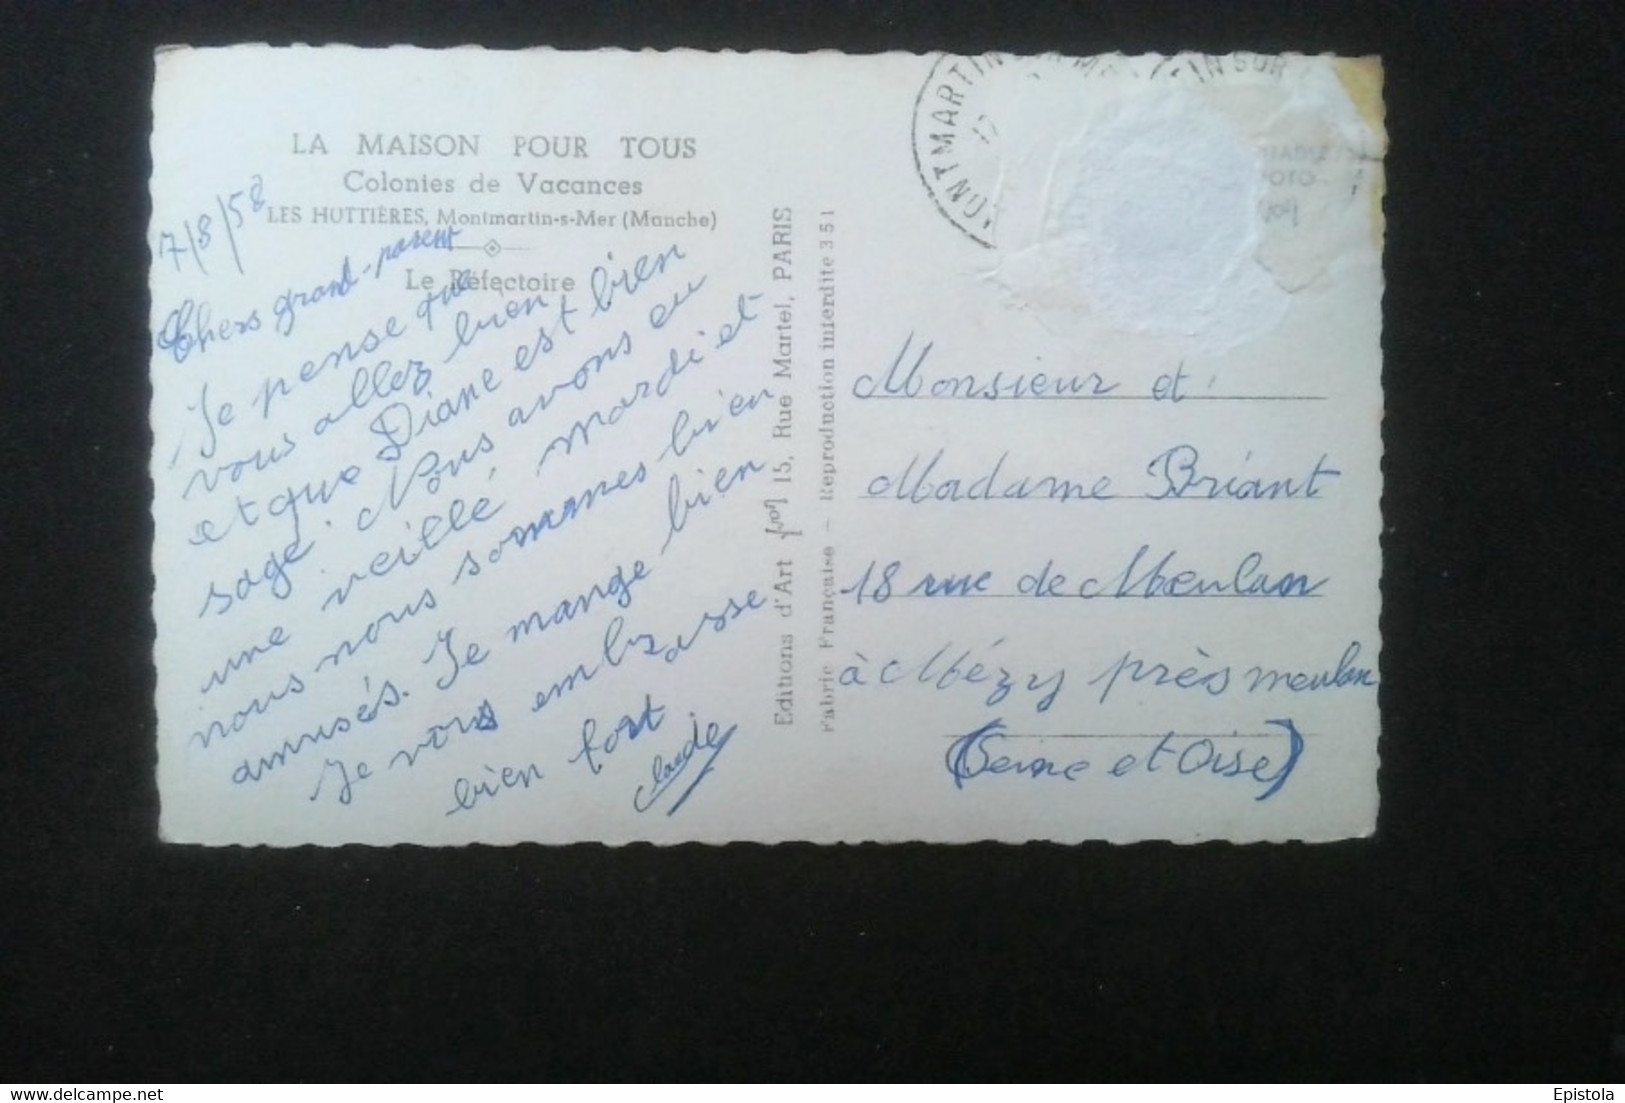 LA MAISON POUR TOUS
Colonies de Vacances
LES HUTTIÈRES, Montmartin-s-Mer (Manche)
Le Réfectoire
7/8/58
Chers grand-parent
Je pense que
vous allez bien
et que Diane est bien
sage. Nous avons eu
une veillé mardi et
nous nous sommes bien
amusés. Je mange bien
Je vous embrasse
bien fort
Claude
Editions d'Art 15, Rue Martel, PARIS
Fabric Française - Reproduction interdite 351
MONTMARTIN SUR M
IN SUR
Monsieur et
Madame Briant
18 rue de Meulan
à Mézy près meulan
(Seine et Oise)
delcampe.net
Epistola